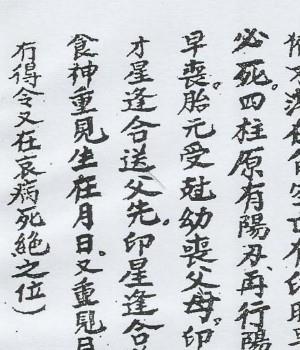 必死。四柱原有陽刃。再行陽
早喪。胎元受尅幼喪父母。印
才星逢合送父先。印星逢合
食神重見坐在月日。又重見
冇得令又在衰病死絕之位）